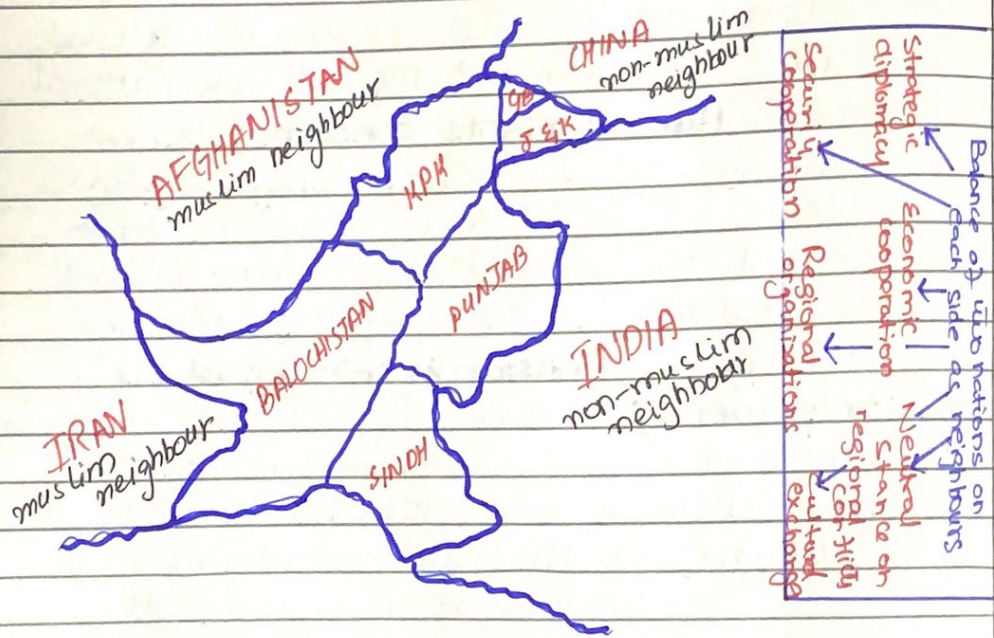 CHINA
non-muslim
neighbour
AFGHANISTAN
muslim neighbour
GB
J & K
KPK
PUNJAB
BALOCHISTAN
INDIA
non-muslim
neighbour
IRAN
muslim
neighbour
SINDH
Balance of two nations on
each side as neighbours
Strategic
diplomacy
Economic
cooperation
Neutral
stance on
regional
conflicts
Security
cooperation
Regional
organizations
Cultural
exchange